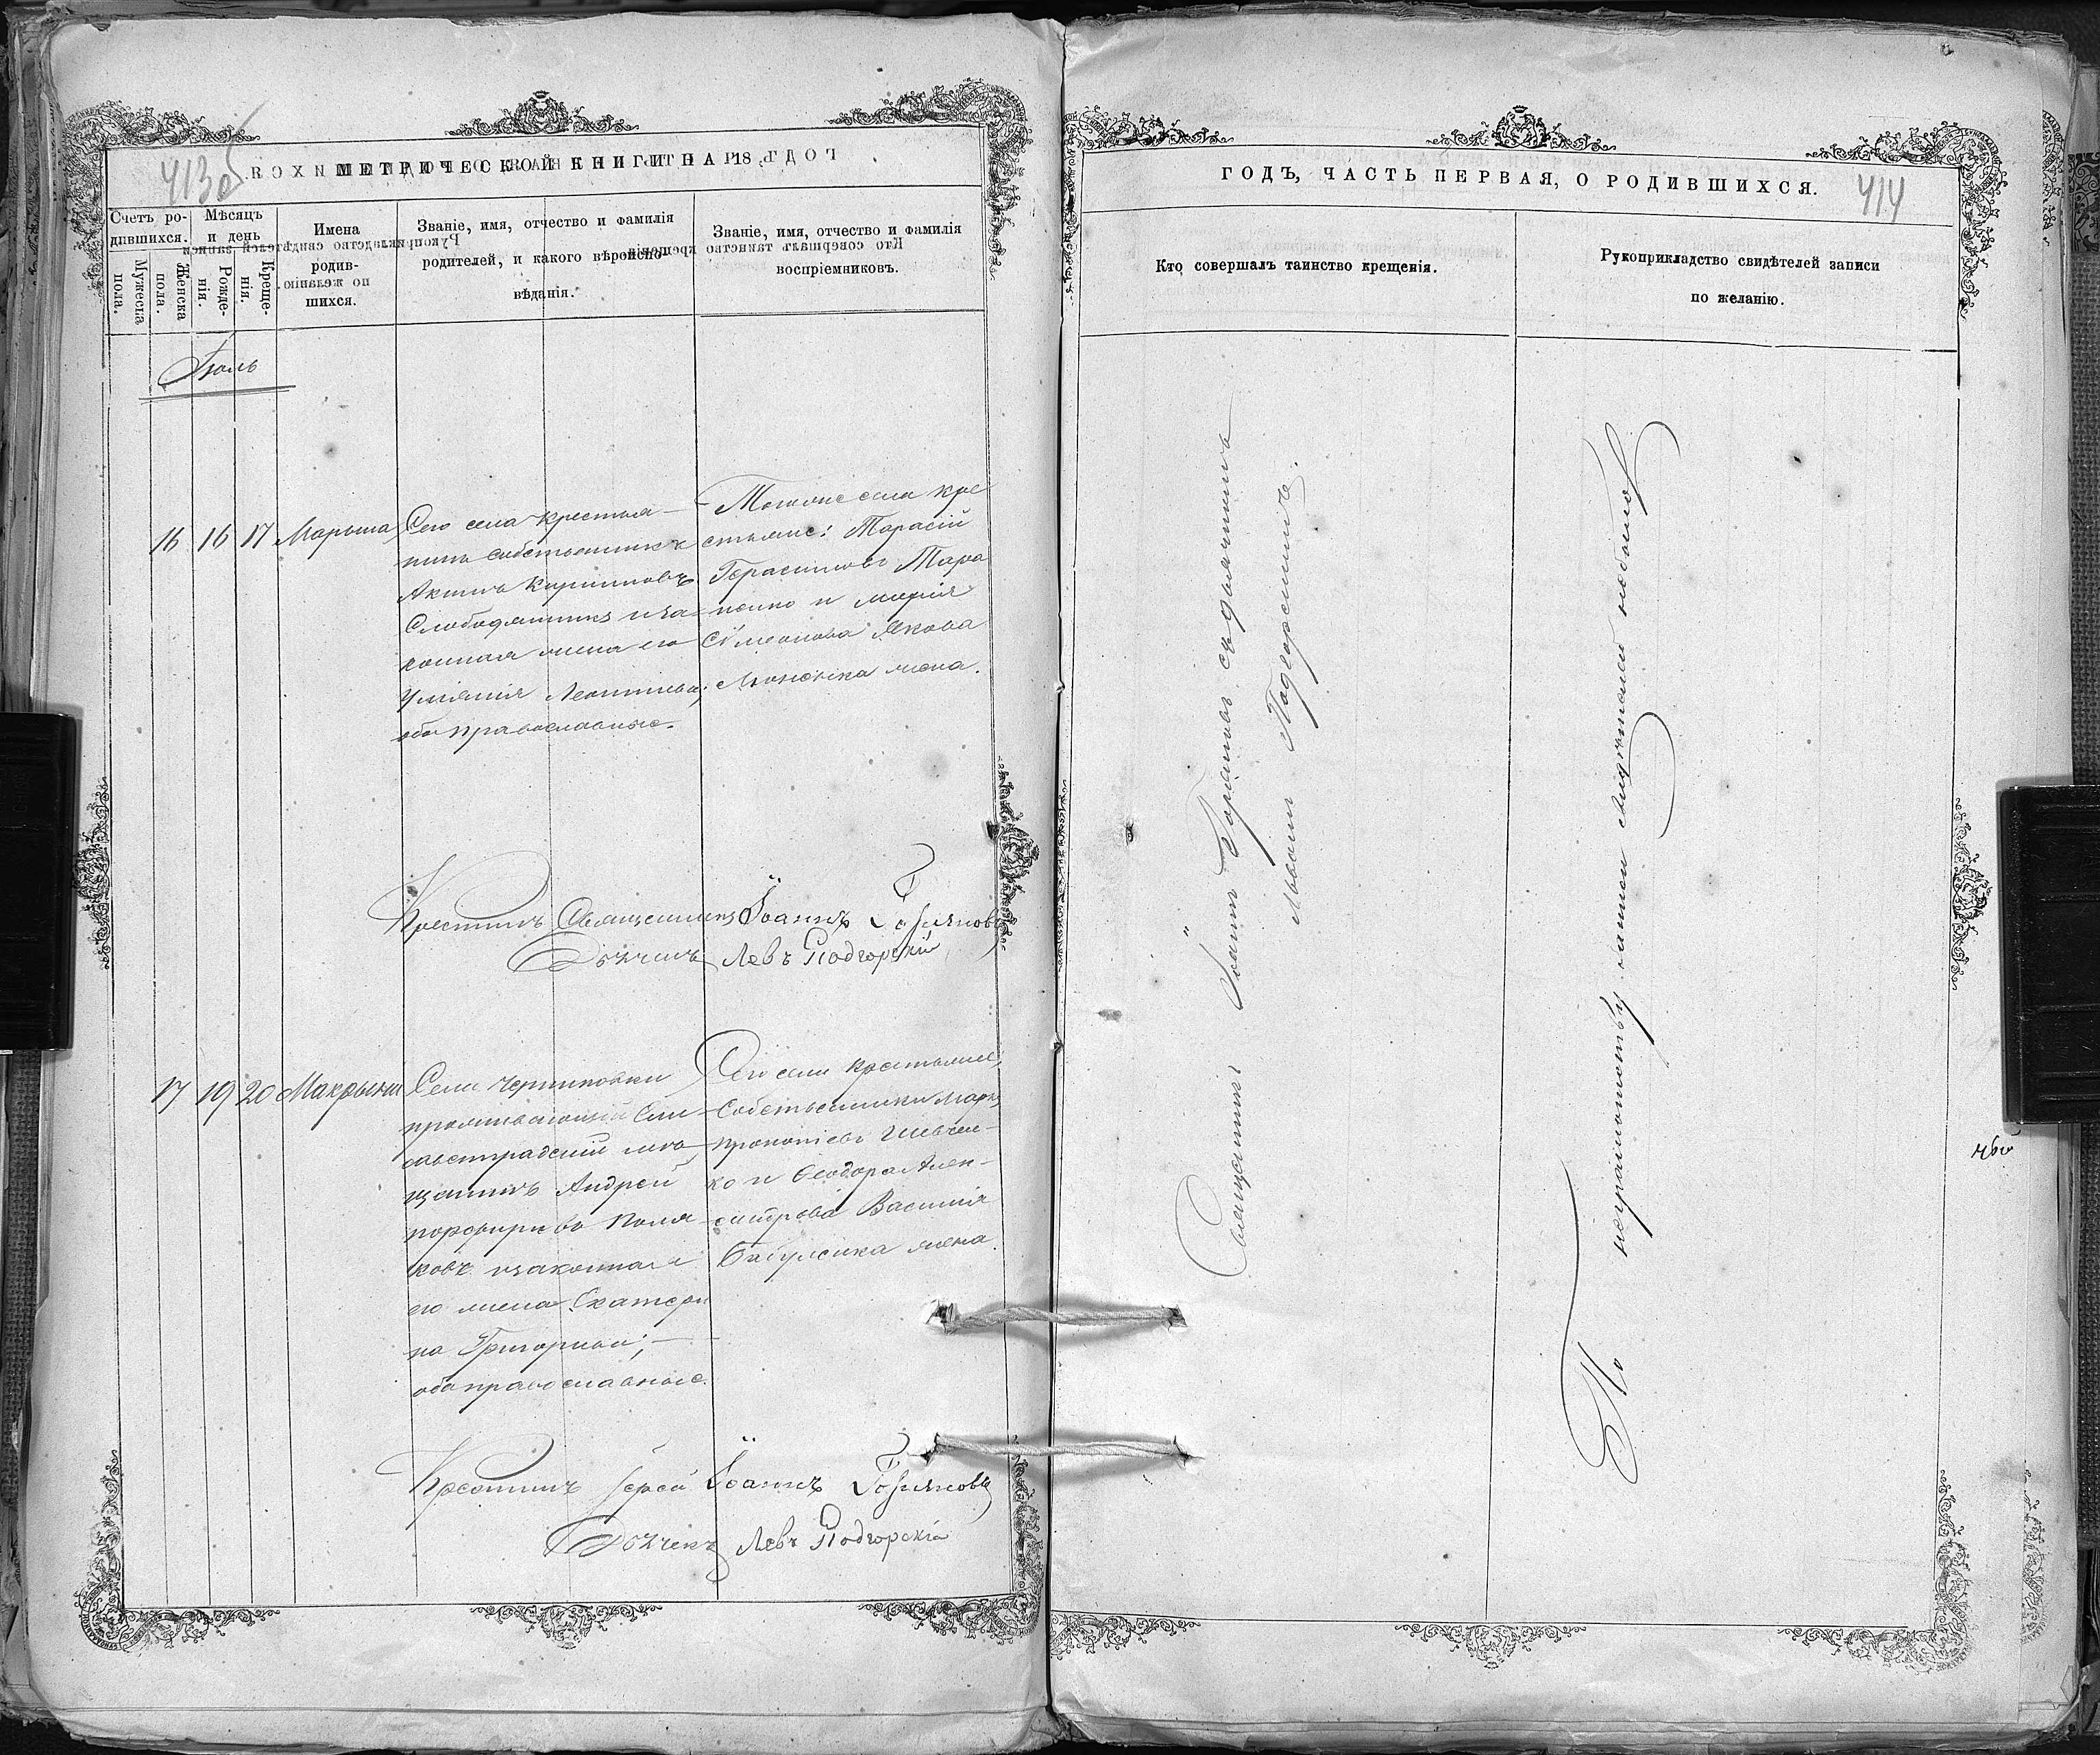 413об
МЕТРИЧЕСКОЙ КНИГИ НА 18
Счетъ ро-
дившихся.
Мужеска
пола.
Женска
пола.
Мѣсяцъ
и день
Рожде-
нія.
Креще-
нія.
Имена
родив-
шихся.
Званіе, имя, отчество и фамилія
родителей, и какого вѣроиспо-
вѣданія.
Званіе, имя, отчество и фамилія
воспріемниковъ.
Іюль
16 16 17 Марьяна
Сего села крестья-
нинъ собственникъ
Акимъ Кирилловъ
Слободяникъ и за-
конная жена его
Уліянія Леонтіева;
оба православные.
Тогоже села кре
стьяне: Тарасій
Герасимовъ Тара
ненко и Марія
Симеонова Якова
жена.
Крестилъ Священникъ Іоаннъ
Дьячекъ Левъ Подгорскій
17 19 20 Макрына
Села
проживающій Ели-
саветградскій мѣ-
щанинъ Андрей
Порфиріевъ Поля
ковъ и законная
его жена Екатери
на Григорьева;
оба православные.
Сего села крестьяне,
собственники Маркъ
Прокопіевъ Шевчен-
ко и Ѳеодора Алек-
сандрова Василія
жена.
Крестилъ Іерей Іоаннъ
Дьячекъ Левъ Подгорскій
ГОДЪ, ЧАСТЬ ПЕРВАЯ, О РОДИВШИХСЯ.
414
Кто совершалъ таинство крещенія.
Рукоприкладство свидѣтелей записи
по желанію.
Священникъ Іоаннъ съ дьячкомъ
Львомъ Подгорскимъ.
По неграмотству записи свидѣтелей небыло